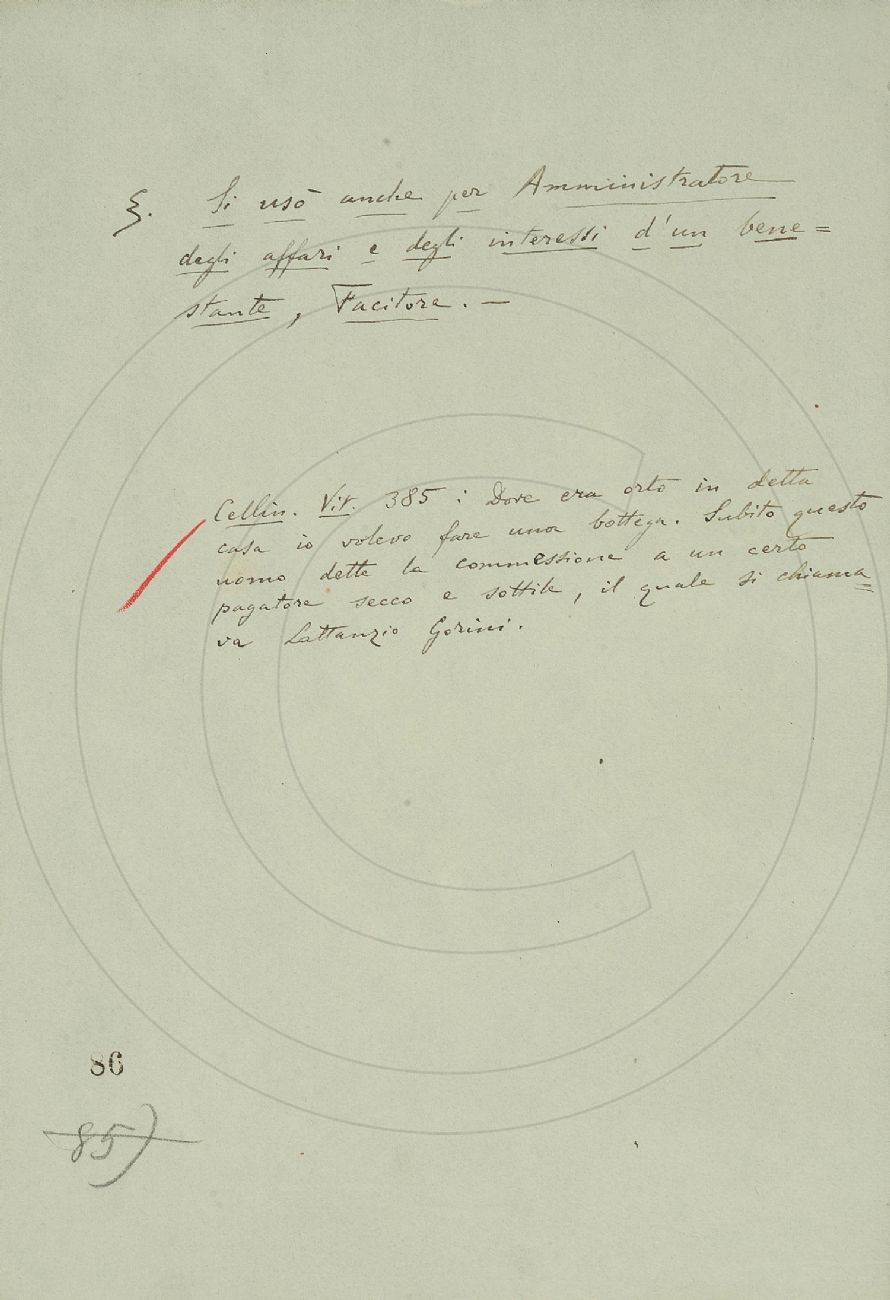 §. Si usò anche per Amministratore
degli affari e degli interessi d'un bene=
stante, Facitore. —
Cellin. Vit. 385: Dove era orto in detta
casa io volevo fare una bottega. Subito questo
uomo dette la commessione a un certo
pagatore secco e sottile, il quale si chiama=
va Lattanzio Gorini.
86
85)